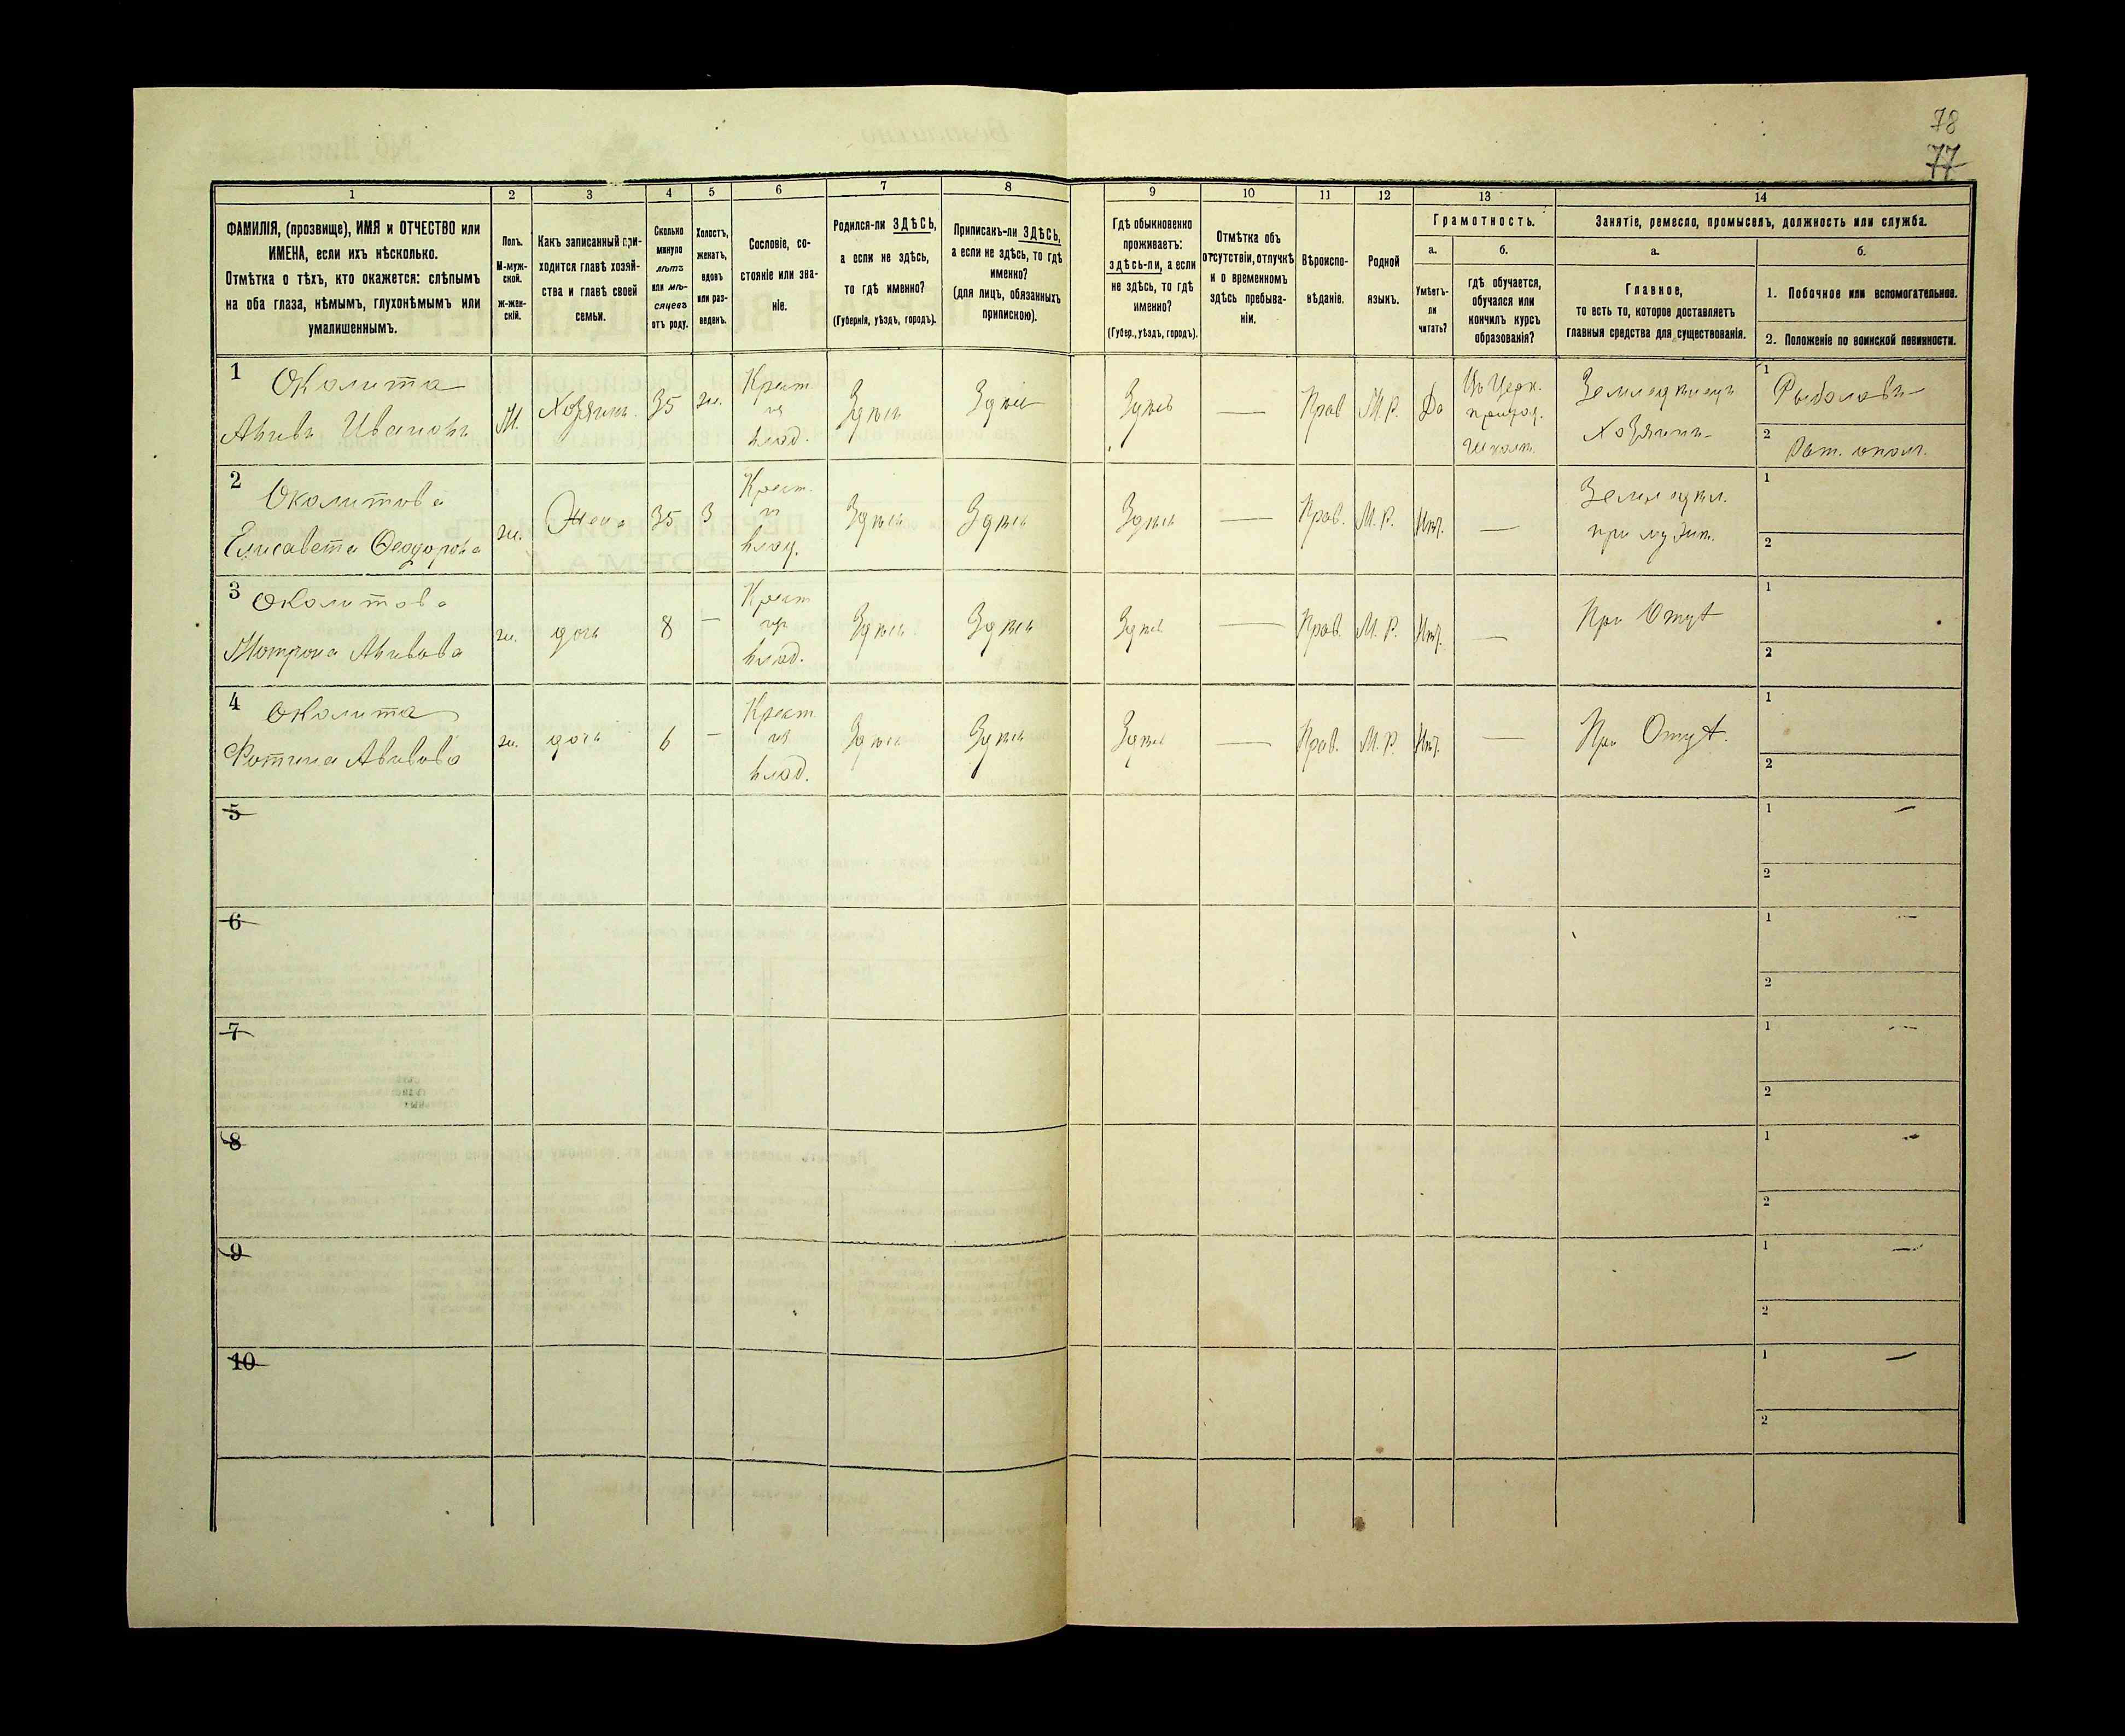 78
77
1
2
3
4
5
6
7
8
9
10
11
12
13
14
ФАМИЛІЯ, (прозвище), ИМЯ и ОТЧЕСТВО или
ИМЕНА, если ихъ нѣсколько.
Отмѣтка о тѣхъ, кто окажется: слѣпымъ
на оба глаза, нѣмымъ, глухонѣмымъ или
умалишеннымъ.
Полъ.
М-муж-
ской.
ж-жен-
скій.
Какъ записанный при-
ходится главѣ хозяй-
ства и главѣ своей
семьи.
Сколько
минуло
лѣтъ
или мѣ-
сяцевъ
отъ роду.
Холостъ,
женатъ,
вдовъ
или раз-
веденъ.
Сословіе, со-
стояніе или зва-
ніе.
Родился-ли ЗДѢСЬ,
а если не здѣсь,
то гдѣ именно?
(Губернія, уѣздъ, городъ).
Приписанъ-ли ЗДѢСЬ,
а если не здѣсь, то гдѣ
именно?
(для лицъ, обязанныхъ
припискою).
Гдѣ обыкновенно
проживаетъ:
здѣсь-ли, а если
не здѣсь, то гдѣ
именно?
(Губер., уѣздъ, городъ).
Отмѣтка объ
отсутствіи, отлучкѣ
и о временномъ
здѣсь пребыва-
ніи.
Вѣроиспо-
вѣданіе.
Родной
языкъ.
Грамотность.
а.
Умѣетъ-
ли
читать?
б.
гдѣ обучается,
обучался или
кончилъ курсъ
образованія?
Занятіе, ремесло, промыселъ, должность или служба.
а.
Главное,
то есть то, которое доставляетъ
главныя средства для существованія.
б.
1. Побочное или вспомогательное.
2. Положеніе по воинской повинности.
1
Околита
Акивъ Ивановъ
М.
Хозяинъ.
35
ж.
Крест.
изъ
влад.
Здѣсь
Здѣсь
Здѣсь
—
Прав
М.Р.
Да
Въ Церк.
приход.
школѣ.
Земледѣлецъ
Хозяинъ
1
Рыболовъ
2
Рат. опол.
2
Околитова
Елисавета Феодорова
ж.
Жена
35
З
Крест.
изъ
влад.
Здѣсь
Здѣсь
Здѣсь
—
Прав.
М.Р.
Нѣт.
—
Земледѣл.
при мужѣ.
1
2
3
Околитова
Мотрона Акивова
ж.
дочь
8
—
Крест
изъ
влад.
Здѣсь
Здѣсь
Здѣсь
—
Прав.
М.Р.
Нѣт.
—
При Отцѣ
1
2
4
Околита
Фотина Акивова
ж.
дочь
6
—
Крест
изъ
влад.
Здѣсь
Здѣсь
Здѣсь
—
Прав.
М.Р.
Нѣт.
—
При Отцѣ.
1
2
5
1
2
6
1
2
7
1
2
8
1
2
9
1
2
10
1
2